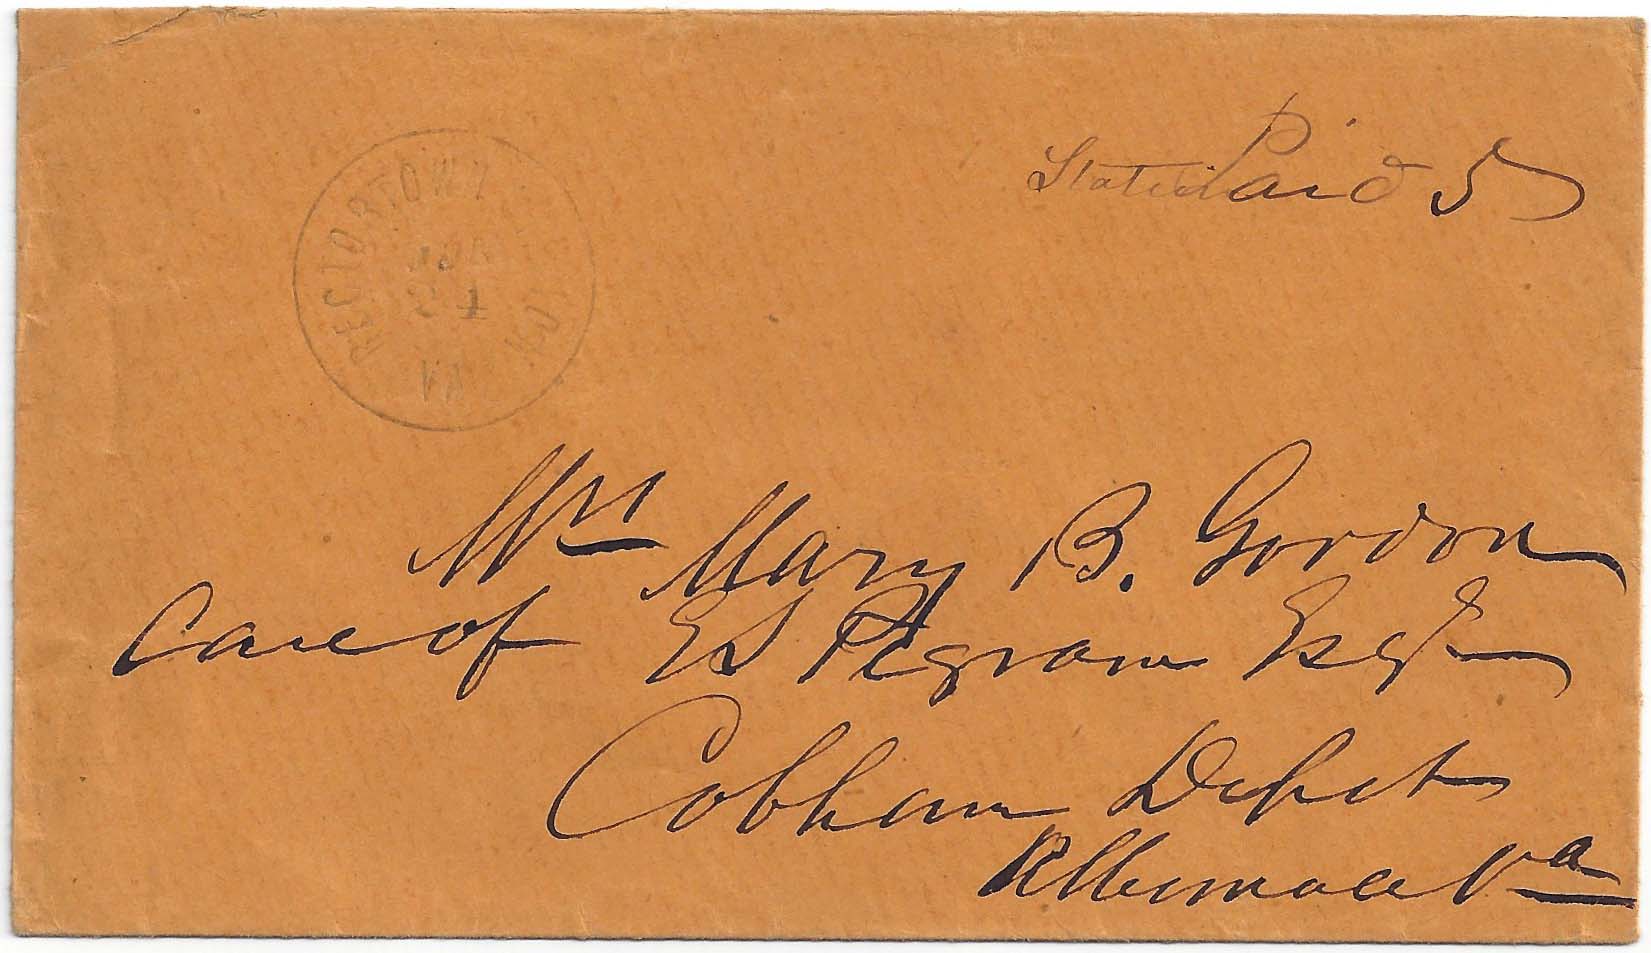 RECTORTOWN
VA
24
Paid 5
Mrs Mary B. Gordon
Care of ES Pegram Esqr
Cobham Depot
Albemarle Va